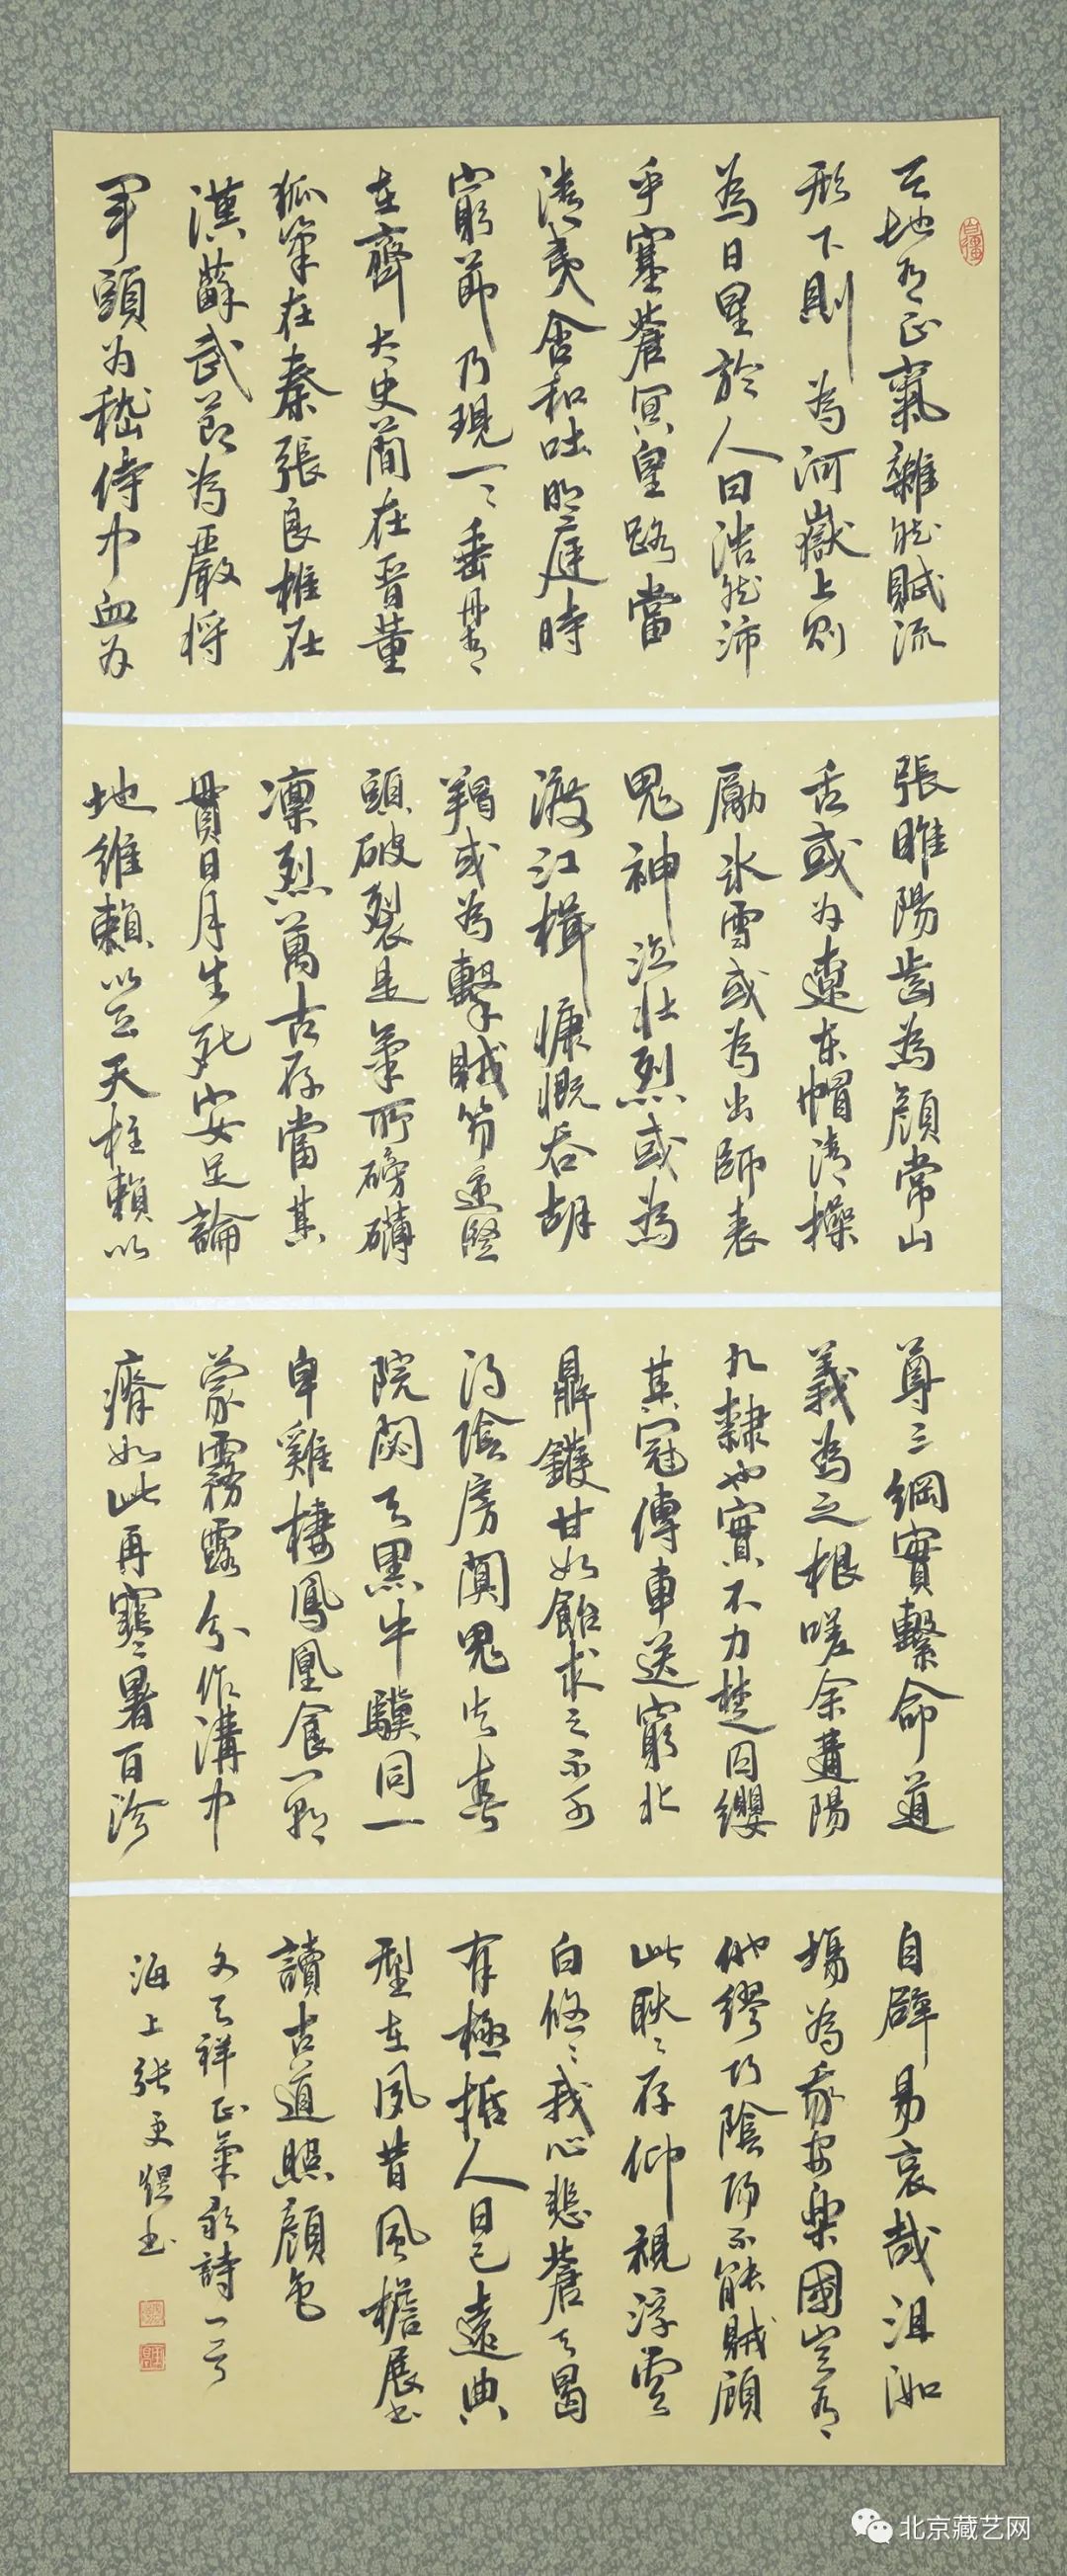 天地有正氣雜然賦流
形下則為河嶽上則
為日星於人曰浩然沛
乎塞蒼冥皇路當
清夷含和吐明庭時
窮節乃現一々垂丹青
在齊太史簡在晉董
狐筆在秦張良椎在
漢蘇武節為嚴將
軍頭為嵇侍中血為
張睢陽齒為顏常山
舌或為遼東帽清操
厲冰雪或為出師表
鬼神泣壯烈或為
渡江楫慷慨吞胡
羯或為擊賊笏逆豎
頭破裂是氣所磅礴
凜烈萬古存當其
貫日月生死安足論
地維賴以立天柱賴以
尊三綱實繫命道
義為之根嗟余遘陽
九隸也實不力楚囚纓
其冠傳車送窮北
鼎鑊甘如飴求之不可
得陰房闃鬼火春
院閟天黑牛驥同一
皁雞棲鳳凰食一朝
蒙霧露分作溝中
瘠如此再寒暑百沴
自辟易哀哉沮洳
場為我安樂國豈有
他繆巧陰陽不能賊顧
此耿々存仰視浮雲
白悠々我心悲蒼天曷
有極哲人日已遠典
型在夙昔風檐展書
讀古道照顏色
文天祥正氣歌詩一首
海上張更煜書
北京藏艺网